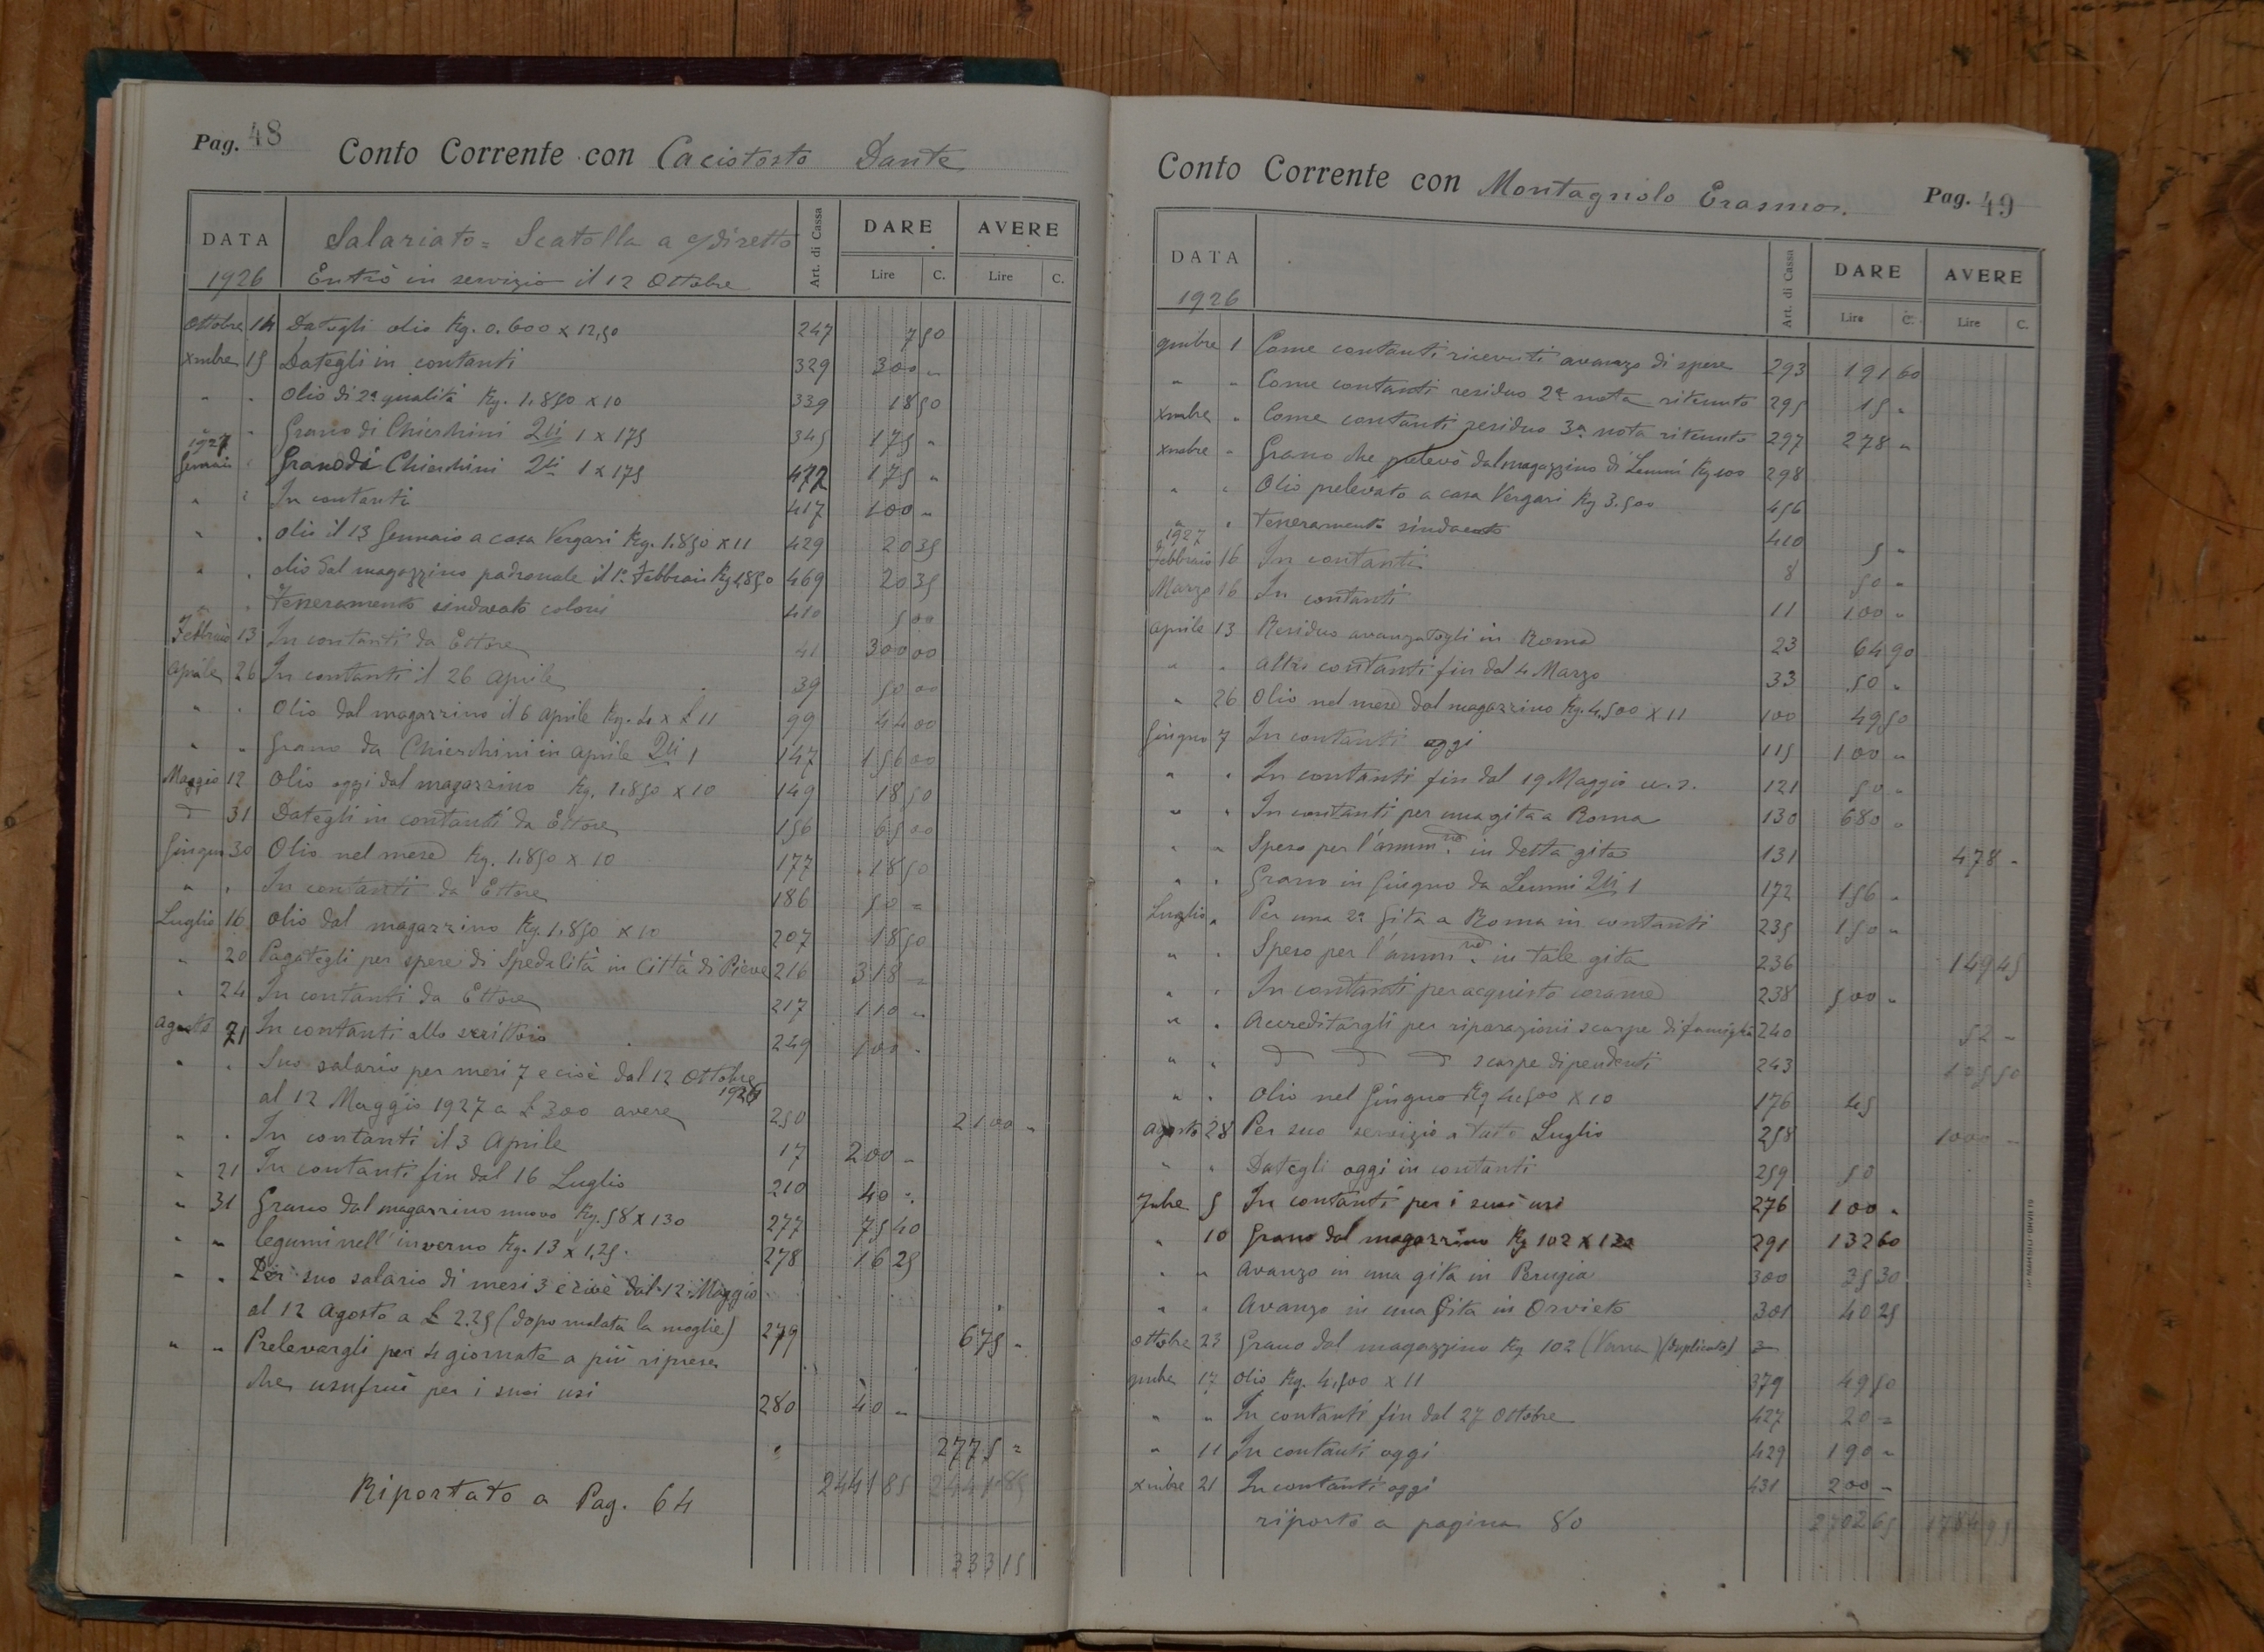 Pag. 48
Conto Corrente con Caciotosto Dante
DATA Salariato = Scatolla a c/diretto Art. di Cassa DARE AVERE
1926 Entrò in servizio il 12 Ottobre Lire C. Lire C.
Ottobre 14 Dategli olio Kg. 0.600 x 12,50 247 7 50
Xmbre 15 Dategli in contanti 329 300 "
" " Olio di 2ª qualità Kg. 1.850 x 10 339 18 50
" " Grano di Chierchini Qli 1 x 175 345 175 "
1927
Gennaio " Grano di Chierchini Qli 1 x 175 472 175 "
" " In contanti 417 100 "
" " olio il 13 Gennaio a casa Vergari Kg. 1.850 x 11 429 20 35
" " olio dal magazzino padronale il 1° Febbraio Kg 1.850 469 20 35
" " Tesseramento sindacato coloni 410 5 00
Febbraio 13 In contanti da Ettore 41 300 00
Aprile 26 In contanti il 26 Aprile 39 50 00
" " Olio dal magazzino il 6 Aprile Kg. 4 x £ 11 99 44 00
" " Grano da Chierchini in Aprile Qli 1 147 156 00
Maggio 12 Olio oggi dal magazzino Kg. 1.850 x 10 149 18 50
" 31 Dategli in contanti da Ettore 156 65 00
Giugno 30 Olio nel mese Kg. 1.850 x 10 177 18 50
" " In contanti da Ettore 186 50 =
Luglio 16 olio dal magazzino Kg. 1.850 x 10 207 18 50
" 20 Pagategli per spese di Spedalità in Città di Pieve 216 318 =
" 24 In contanti da Ettore 217 110 "
Agosto 21 In contanti allo scrittoio 249 100 "
" " Suo salario per mesi 7 e cioè dal 12 Ottobre 1926
al 12 Maggio 1927 a £ 300 avere 250 2100 "
" " In contanti il 3 Aprile 17 200 "
" 21 In contanti fin dal 16 Luglio 210 40 "
" 31 Grano dal magazzino nuovo Kg. 58 x 130 277 75 40
" " legumi nell'inverno Kg. 13 x 1,25. 278 16 25
" " Per suo salario di mesi 3 e cioè dal 12 Maggio
al 12 Agosto a £ 2.25 (dopo malata la moglie) 279 675 "
" " Prelevargli per 4 giornate a più riprese
che usufruì per i suoi usi 280 40 "
2775 =
2441 85 2441 85
Riportato a Pag. 64
333 15
Conto Corrente con Montagnolo Erasmo. Pag. 49
DATA Art. di Cassa DARE AVERE
1926 Lire C. Lire C.
9mbre 1 Come contanti ricevuti avanzo di spese 293 191 60
" " Come contanti residuo 2ª nota ritenuto 295 15 "
Xmbre " Come contanti residuo 3ª nota ritenuto 297 278 "
Xmbre " Grano che prelevò dal magazzino di Lemmi Kg 100 298
" " Olio prelevato a casa Vergari Kg 3.500 456
" " Tesseramento sindacato 410 5 "
1927
Febbraio 16 In contanti 8 50 "
Marzo 16 In contanti 11 100 "
Aprile 13 Residuo avanzatogli in Roma 23 64 90
" " Altri contanti fin dal 4 Marzo 33 50 "
" 26 Olio nel mese dal magazzino Kg. 4,500 x 11 100 49 50
Giugno 7 In contanti oggi 115 100 "
" " In contanti fin dal 19 Maggio u.s. 121 50 "
" " In contanti per una gita a Roma 130 680 "
" " Speso per l'amm.ne in detta gita 131 478 "
" " Grano in Giugno da Lemmi Qli 1 172 156 "
Luglio " Per una 2ª gita a Roma in contanti 235 150 "
" " Speso per l'amm.ne in tale gita 236 149 45
" " In contanti per acquisto corame 238 500 "
" " Accreditargli per riparazioni scarpe di famiglia 240 52 "
" " " " " scarpe dipendenti 243 105 50
" " Olio nel Giugno Kg 4,500 x 10 176 45
Agosto 28 Per suo servizio a tutto Luglio 258 1000 "
" " Dategli oggi in contanti 259 50
7mbre 5 In contanti per i suoi usi 276 100 "
" 10 Grano dal magazzino Kg 102 x 130 291 132 60
" " Avanzo in una gita in Perugia 300 35 30
" " Avanzo in una Gita in Orvieto 301 40 25
Ottobre 23 Grano dal magazzino Kg 102 (duplicato)
9mbre 17 olio Kg. 4,500 x 11 379 49 50
" " In contanti fin dal 27 Ottobre 427 20 =
" 11 In contanti oggi 429 190 "
Xmbre 21 In contanti oggi 431 200 "
riporto a pagina 80 2702 65 1784 95